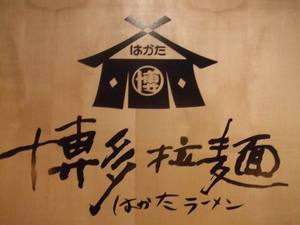 はかた
博
博多拉麺
はかたラーメン